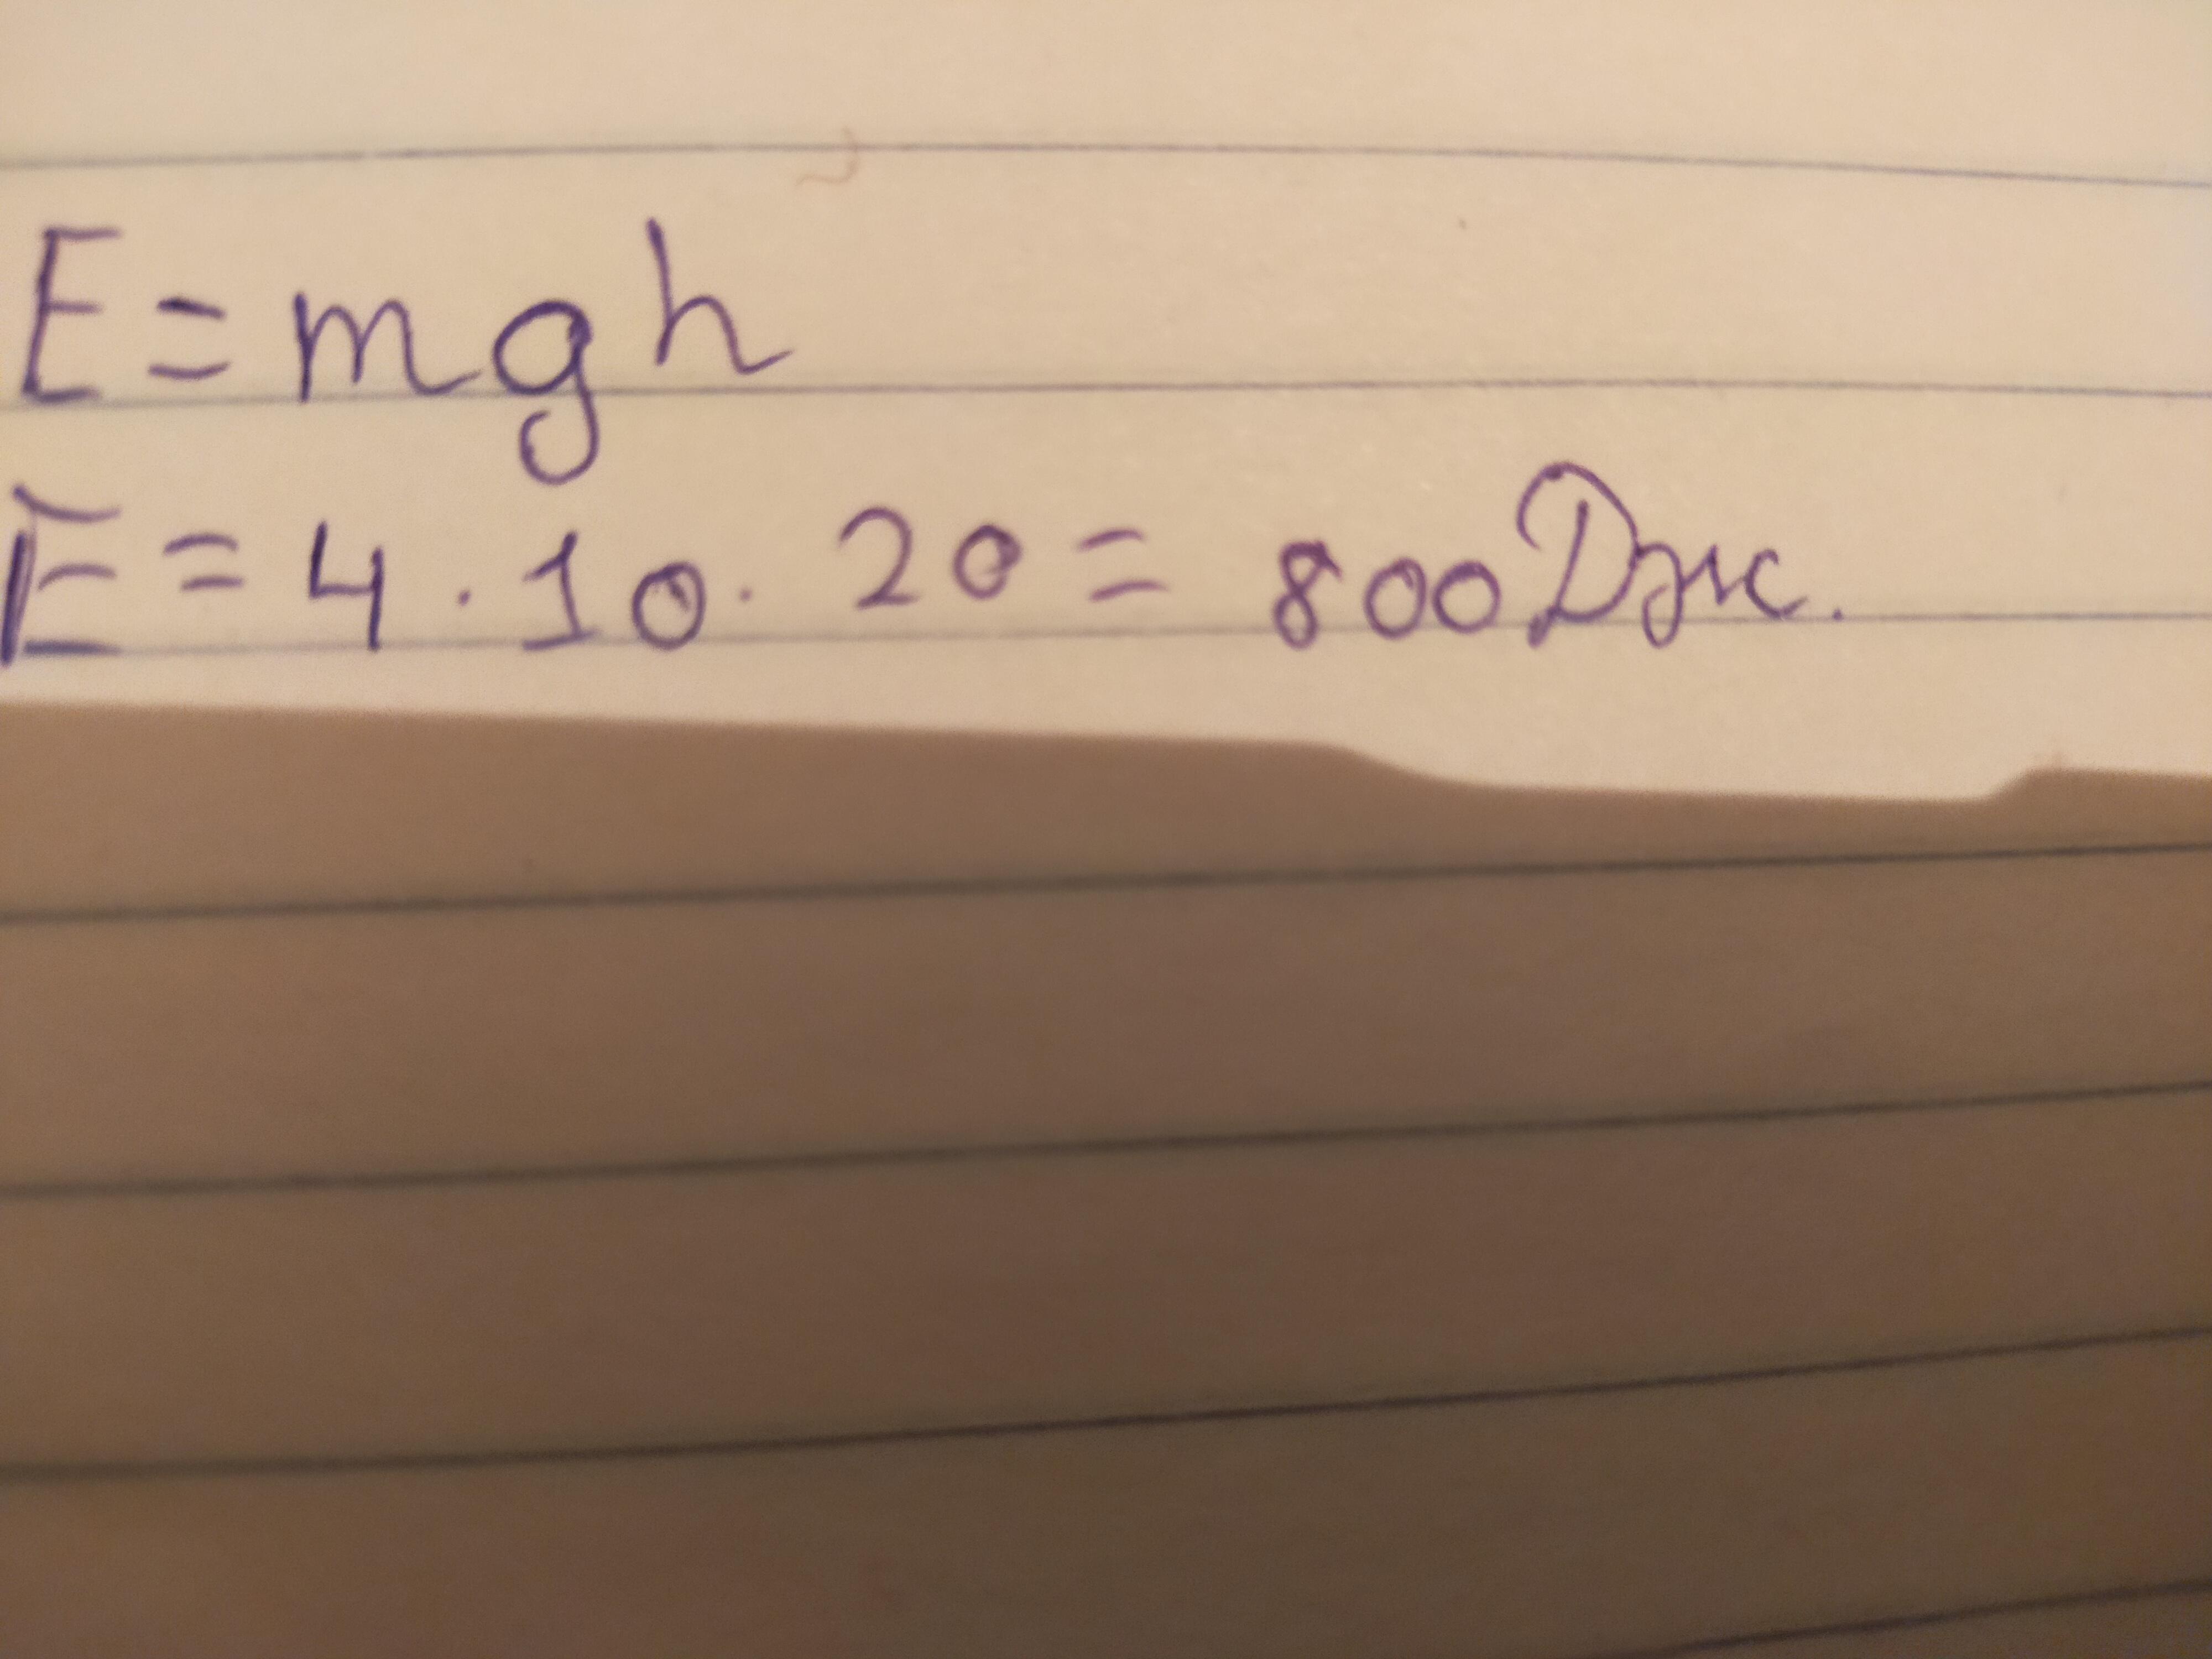 E = mgh
E = 4 · 10 · 20 = 800 Дж.